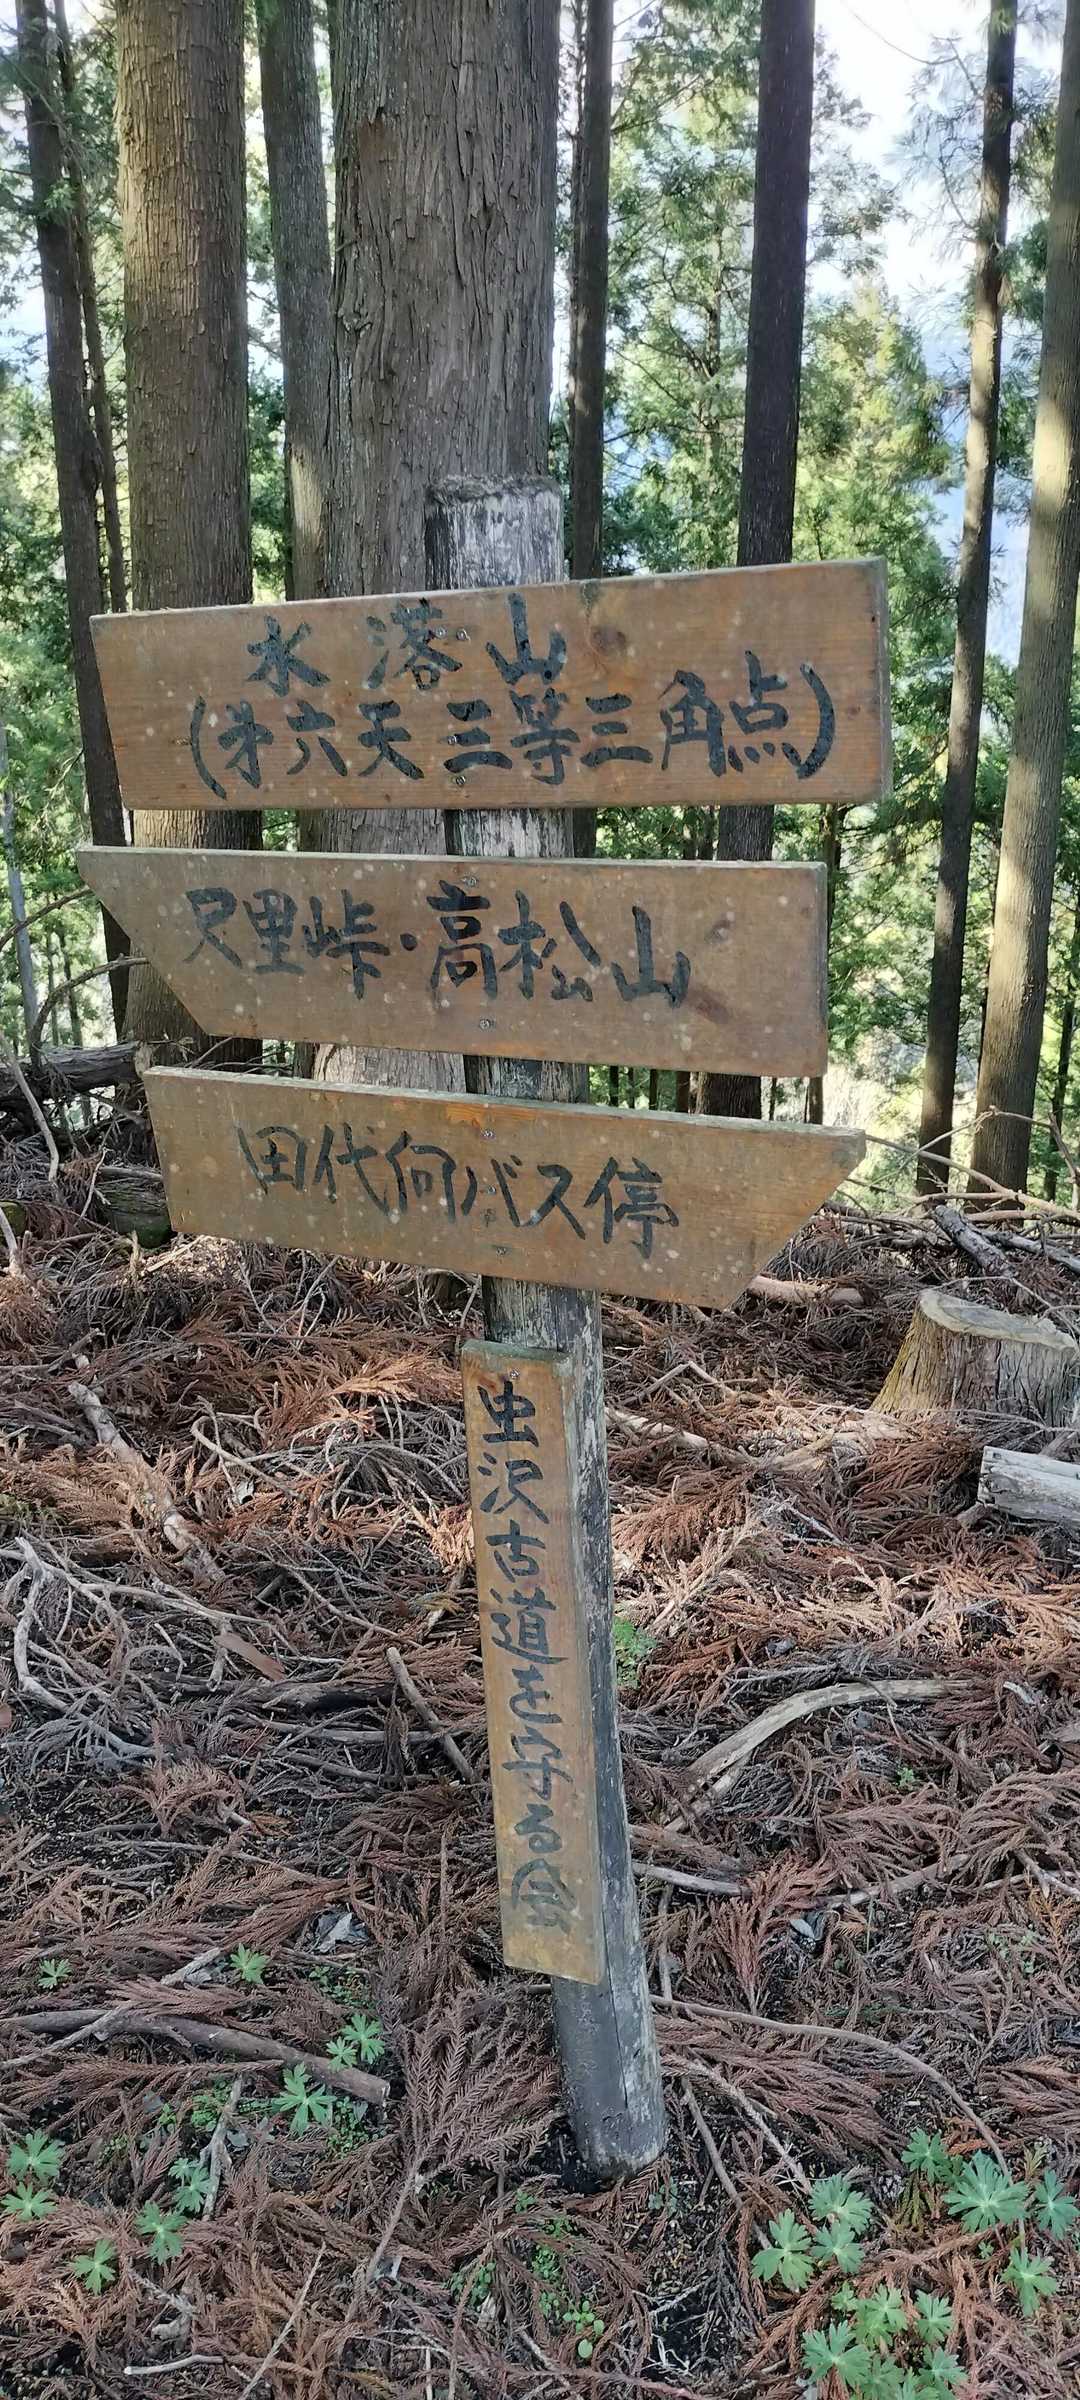 水落山
(㐧六天三等三角点)
尺里峠・高松山
田代向バス停
虫沢古道を守る会